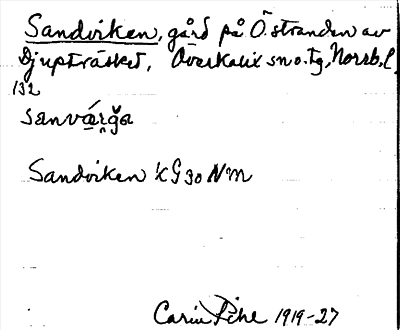 Sandviken, gård på Ö. stranden av
Djupträsket, Överkalix sn o. tg, Norrb. l.
132
sanvǽrǧa
Sandviken kG 30 NM
Carin Pihl 1919-27